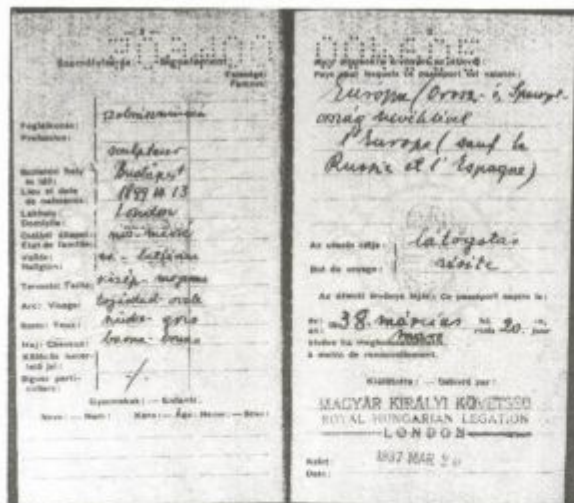 — 2 —
Személyleírás Signalement.
Felesége:
Femme:
Foglalkozás:
Profession:
szobrászművész
sculpteur
Születési hely és idő:
Lieu et date de naissance:
Budapest
1899 13
Lakhely:
Domicile:
London
Családi állapot:
État de famille:
nős - marié
Vallás:
Religion:
Termete: Taille:
közép - moyenne
Arc: Visage:
tojásdad - ovale
Szem: Yeux:
gris
Haj: Cheveux:
barna - bruns
Különös ismertető jel:
Signes particuliers:
Gyermekek: — Enfants:
Neve: — Nom: Kora: — Âge: Neme: — Sexe:
Pays pour lesquels ce passeport est valable:
Európa (Orosz- és Spanyol-
ország kivételével
l'Europe (sauf la
Russie et l'Espagne)
Az utazás célja:
But du voyage:
látogatás
visite
Az útlevél érvénye lejár: Ce passeport expire le:
1938. március hó 20.
mars jour
à moins de renouvellement.
Kiállította: — Délivré par:
MAGYAR KIRÁLYI KÖVETSÉG
ROYAL HUNGARIAN LEGATION
LONDON
Kelet:
Date:
1937 MAR 20